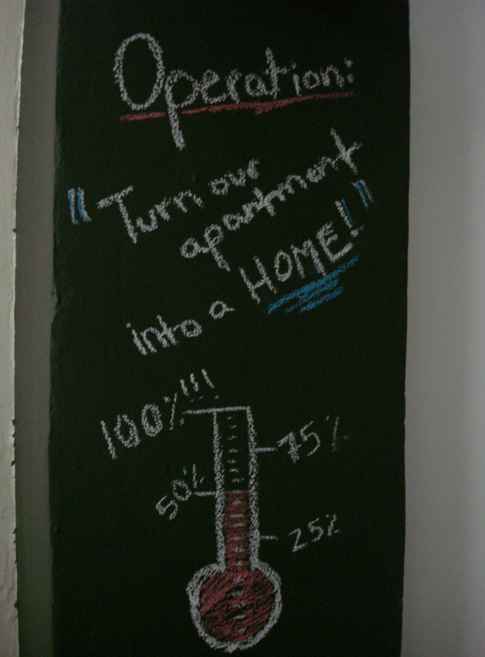 Operation:
"Turn our
apartment
into a HOME!"
100%!!!
75%
50%
25%